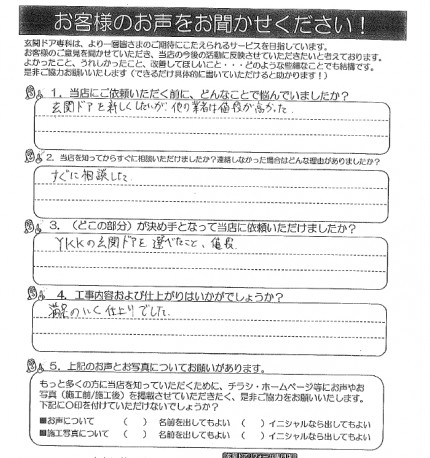 お客様のお声をお聞かせください！
玄関ドア専科は、より一層皆さまのご期待にこたえられるサービスを目指しています。
お客様のご意見を聞かせていただき、当店の今後の活動に反映させていただきたいと考えております。
よかったこと、うれしかったこと、改善してほしいこと・・・どのような些細なことでも結構です。
是非ご協力お願いいたします（できるだけ具体的に書いていただけると助かります！）
1．当店にご依頼いただく前に、どんなことで悩んでいましたか？
玄関ドアを新しくしたいが、他の業者は値段が高かった
2．当店を知ってからすぐに相談いただけましたか？連絡しなかった場合はどんな理由がありましたか？
すぐに相談した
3．（どこの部分）が決め手となって当店に依頼いただけましたか？
YKKの玄関ドアを選べたこと、値段
4．工事内容および仕上がりはいかがでしょうか？
満足のいく仕上りでした
5．上記のお声とお写真についてお願いがあります。
もっと多くの方に当店を知っていただくために、チラシ・ホームページ等にお声やお
写真（施工前/施工後）を掲載させていただきたく、是非ご協力をお願いいたします。
下記に〇印を付けていただけないでしょうか？
■お声について （ ） 名前を出してもよい （ ）イニシャルなら出してもよい
■施工写真について （ ） 名前を出してもよい （ ）イニシャルなら出してもよい